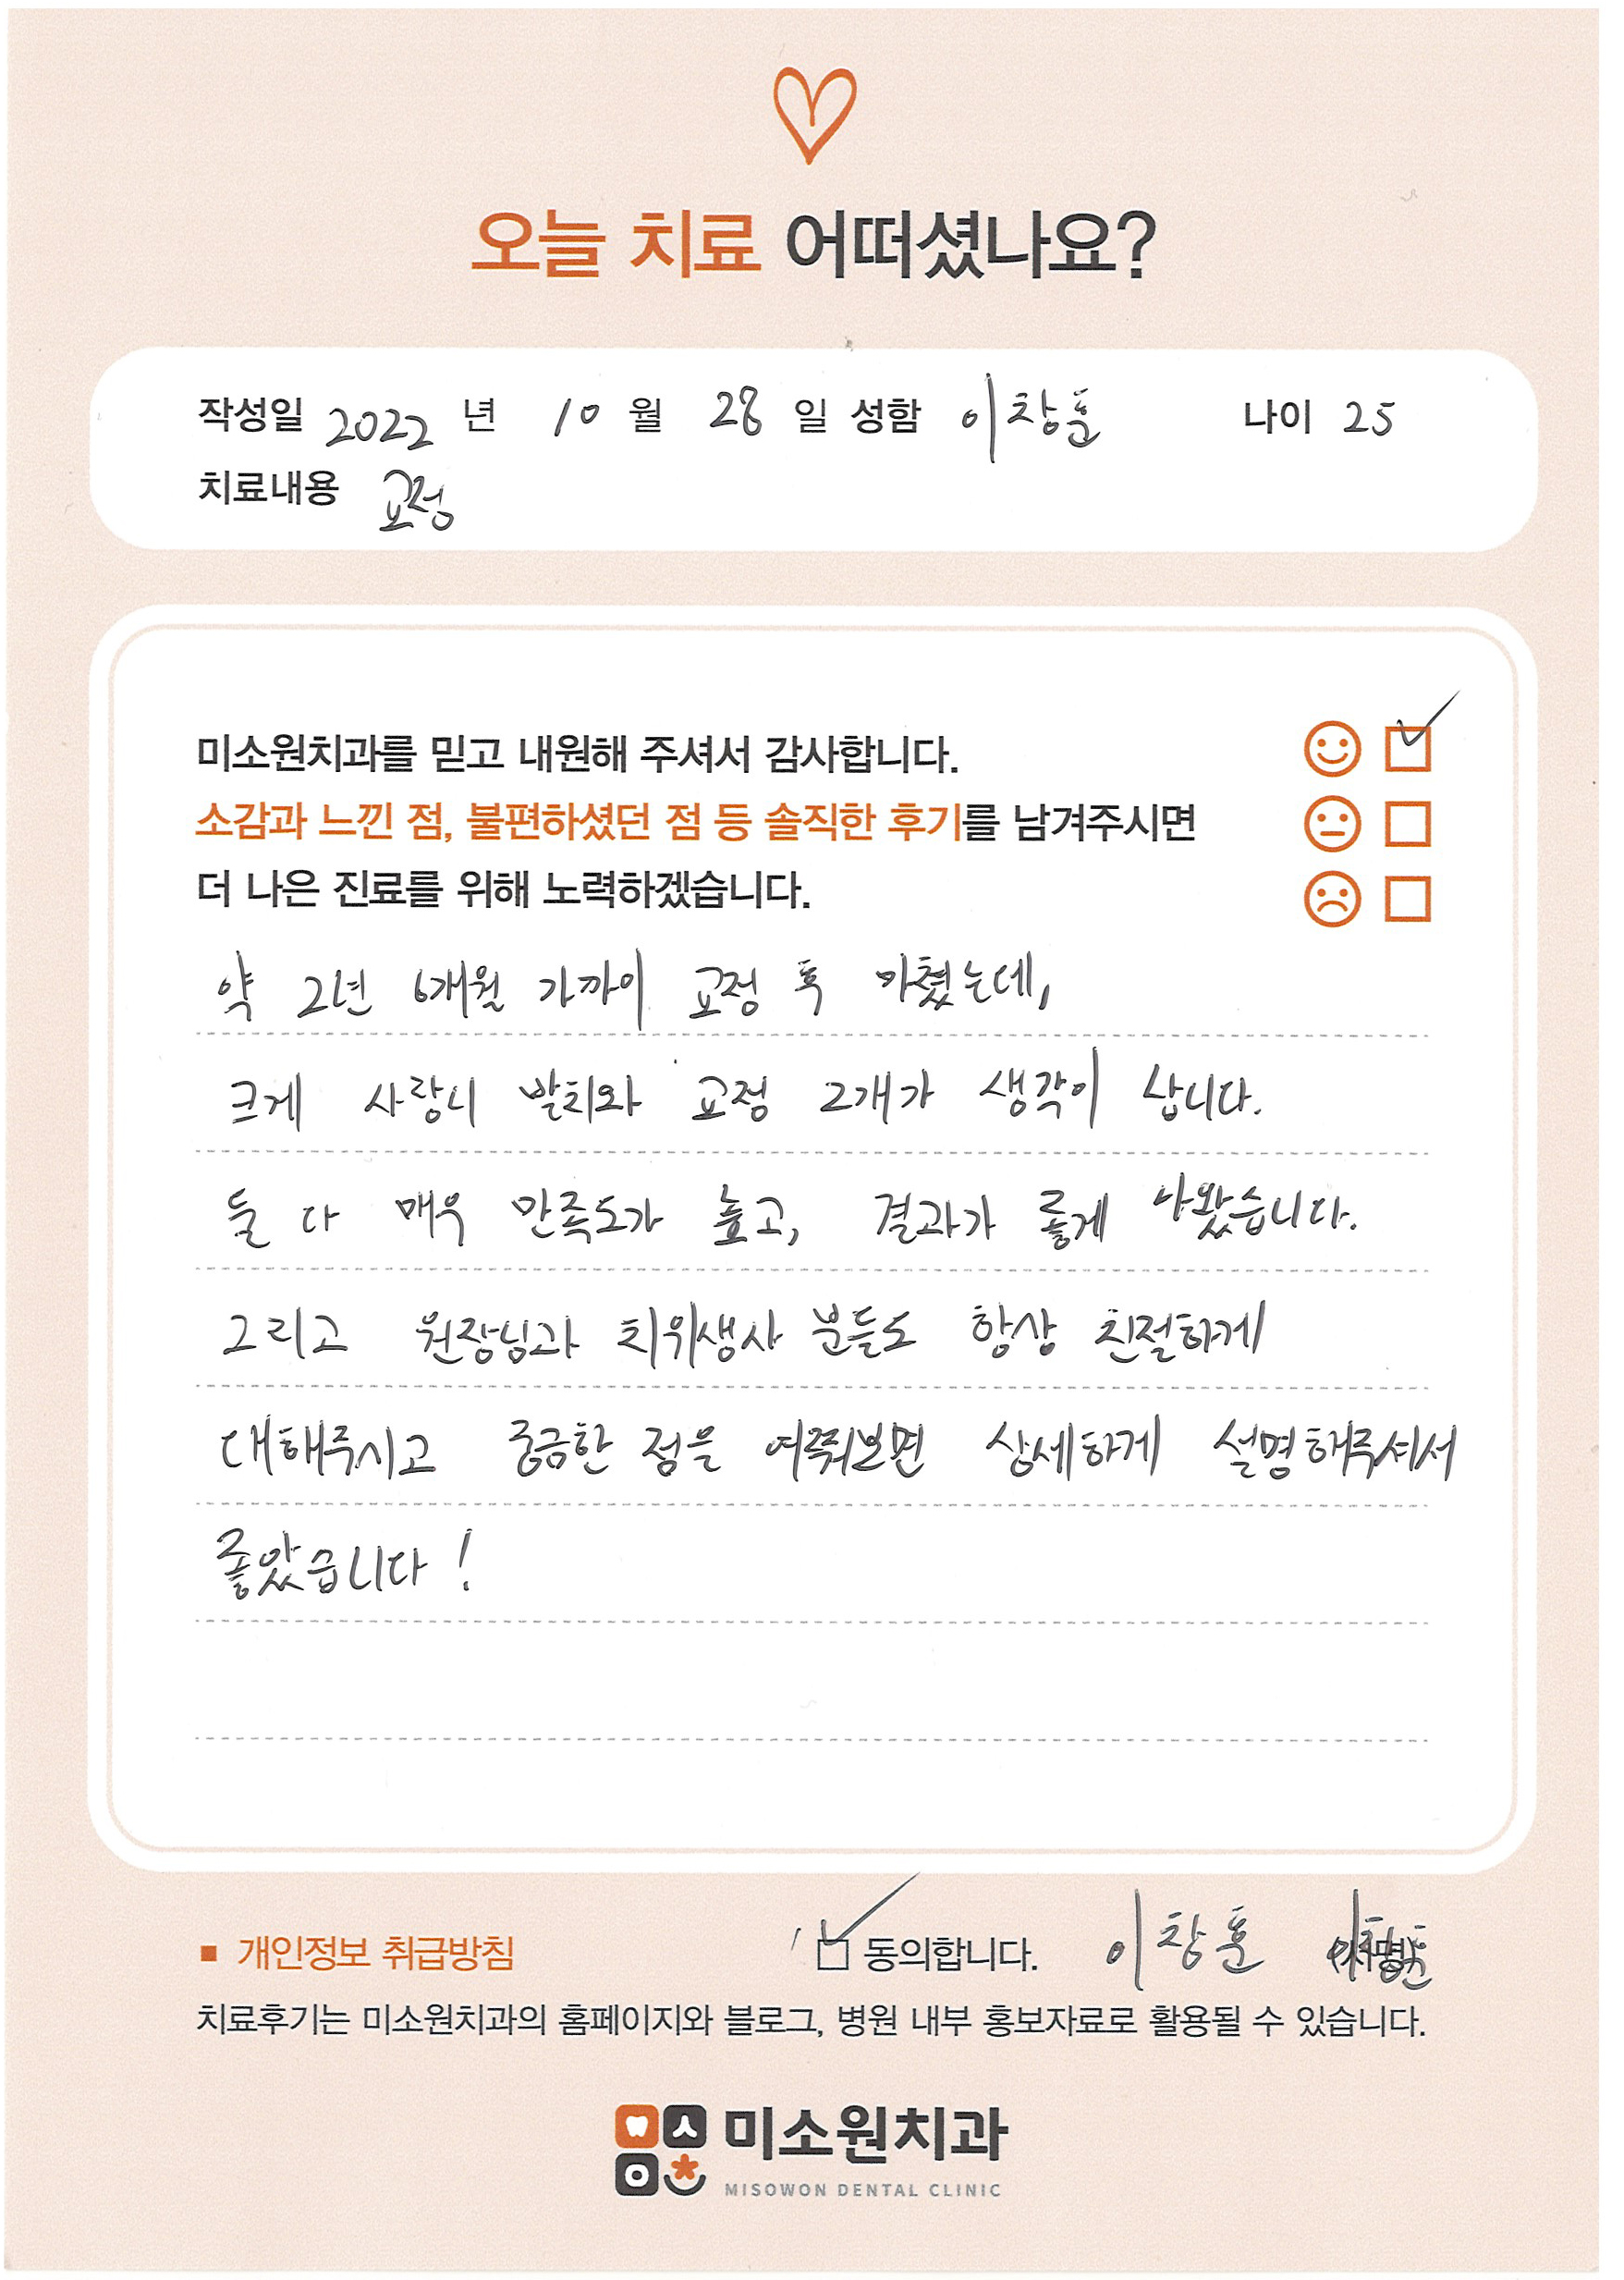 오늘 치료 어떠셨나요?
작성일 2022 년 10 월 28 일 성함 이창훈 나이 25
치료내용 교정
미소원치과를 믿고 내원해 주셔서 감사합니다.
소감과 느낀 점, 불편하셨던 점 등 솔직한 후기를 남겨주시면
더 나은 진료를 위해 노력하겠습니다.
약 2년 6개월 가까이 교정 후 마쳤는데,
크게 사랑니 발치와 교정 2개가 생각이 납니다.
둘 다 매우 만족도가 높고, 결과가 좋게 나왔습니다.
그리고 원장님과 치위생사 분들도 항상 친절하게
대해주시고 궁금한 점을 여쭤보면 상세하게 설명해주셔서
좋았습니다!
■ 개인정보 취급방침 동의합니다. 이창훈 (서명) 이창훈
치료후기는 미소원치과의 홈페이지와 블로그, 병원 내부 홍보자료로 활용될 수 있습니다.
미소원치과
MISOWON DENTAL CLINIC